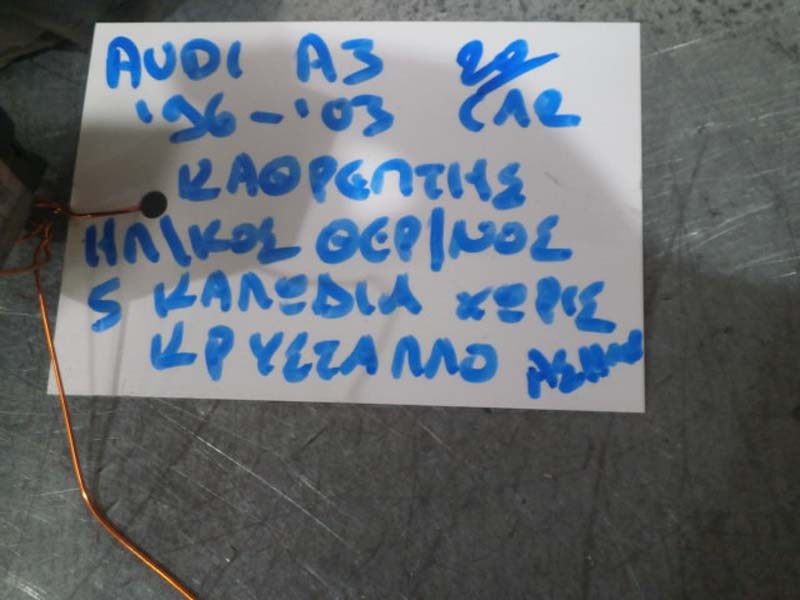 AUDI A3
'96-'03
ΚΑΘΡΕΠΤΗΣ
ΗΛ/ΚΟΣ ΘΕΡ/ΝΟΣ
5 ΚΑΛΩΔΙΑ ΧΩΡΙΣ
ΚΡΥΣΤΑΛΛΟ